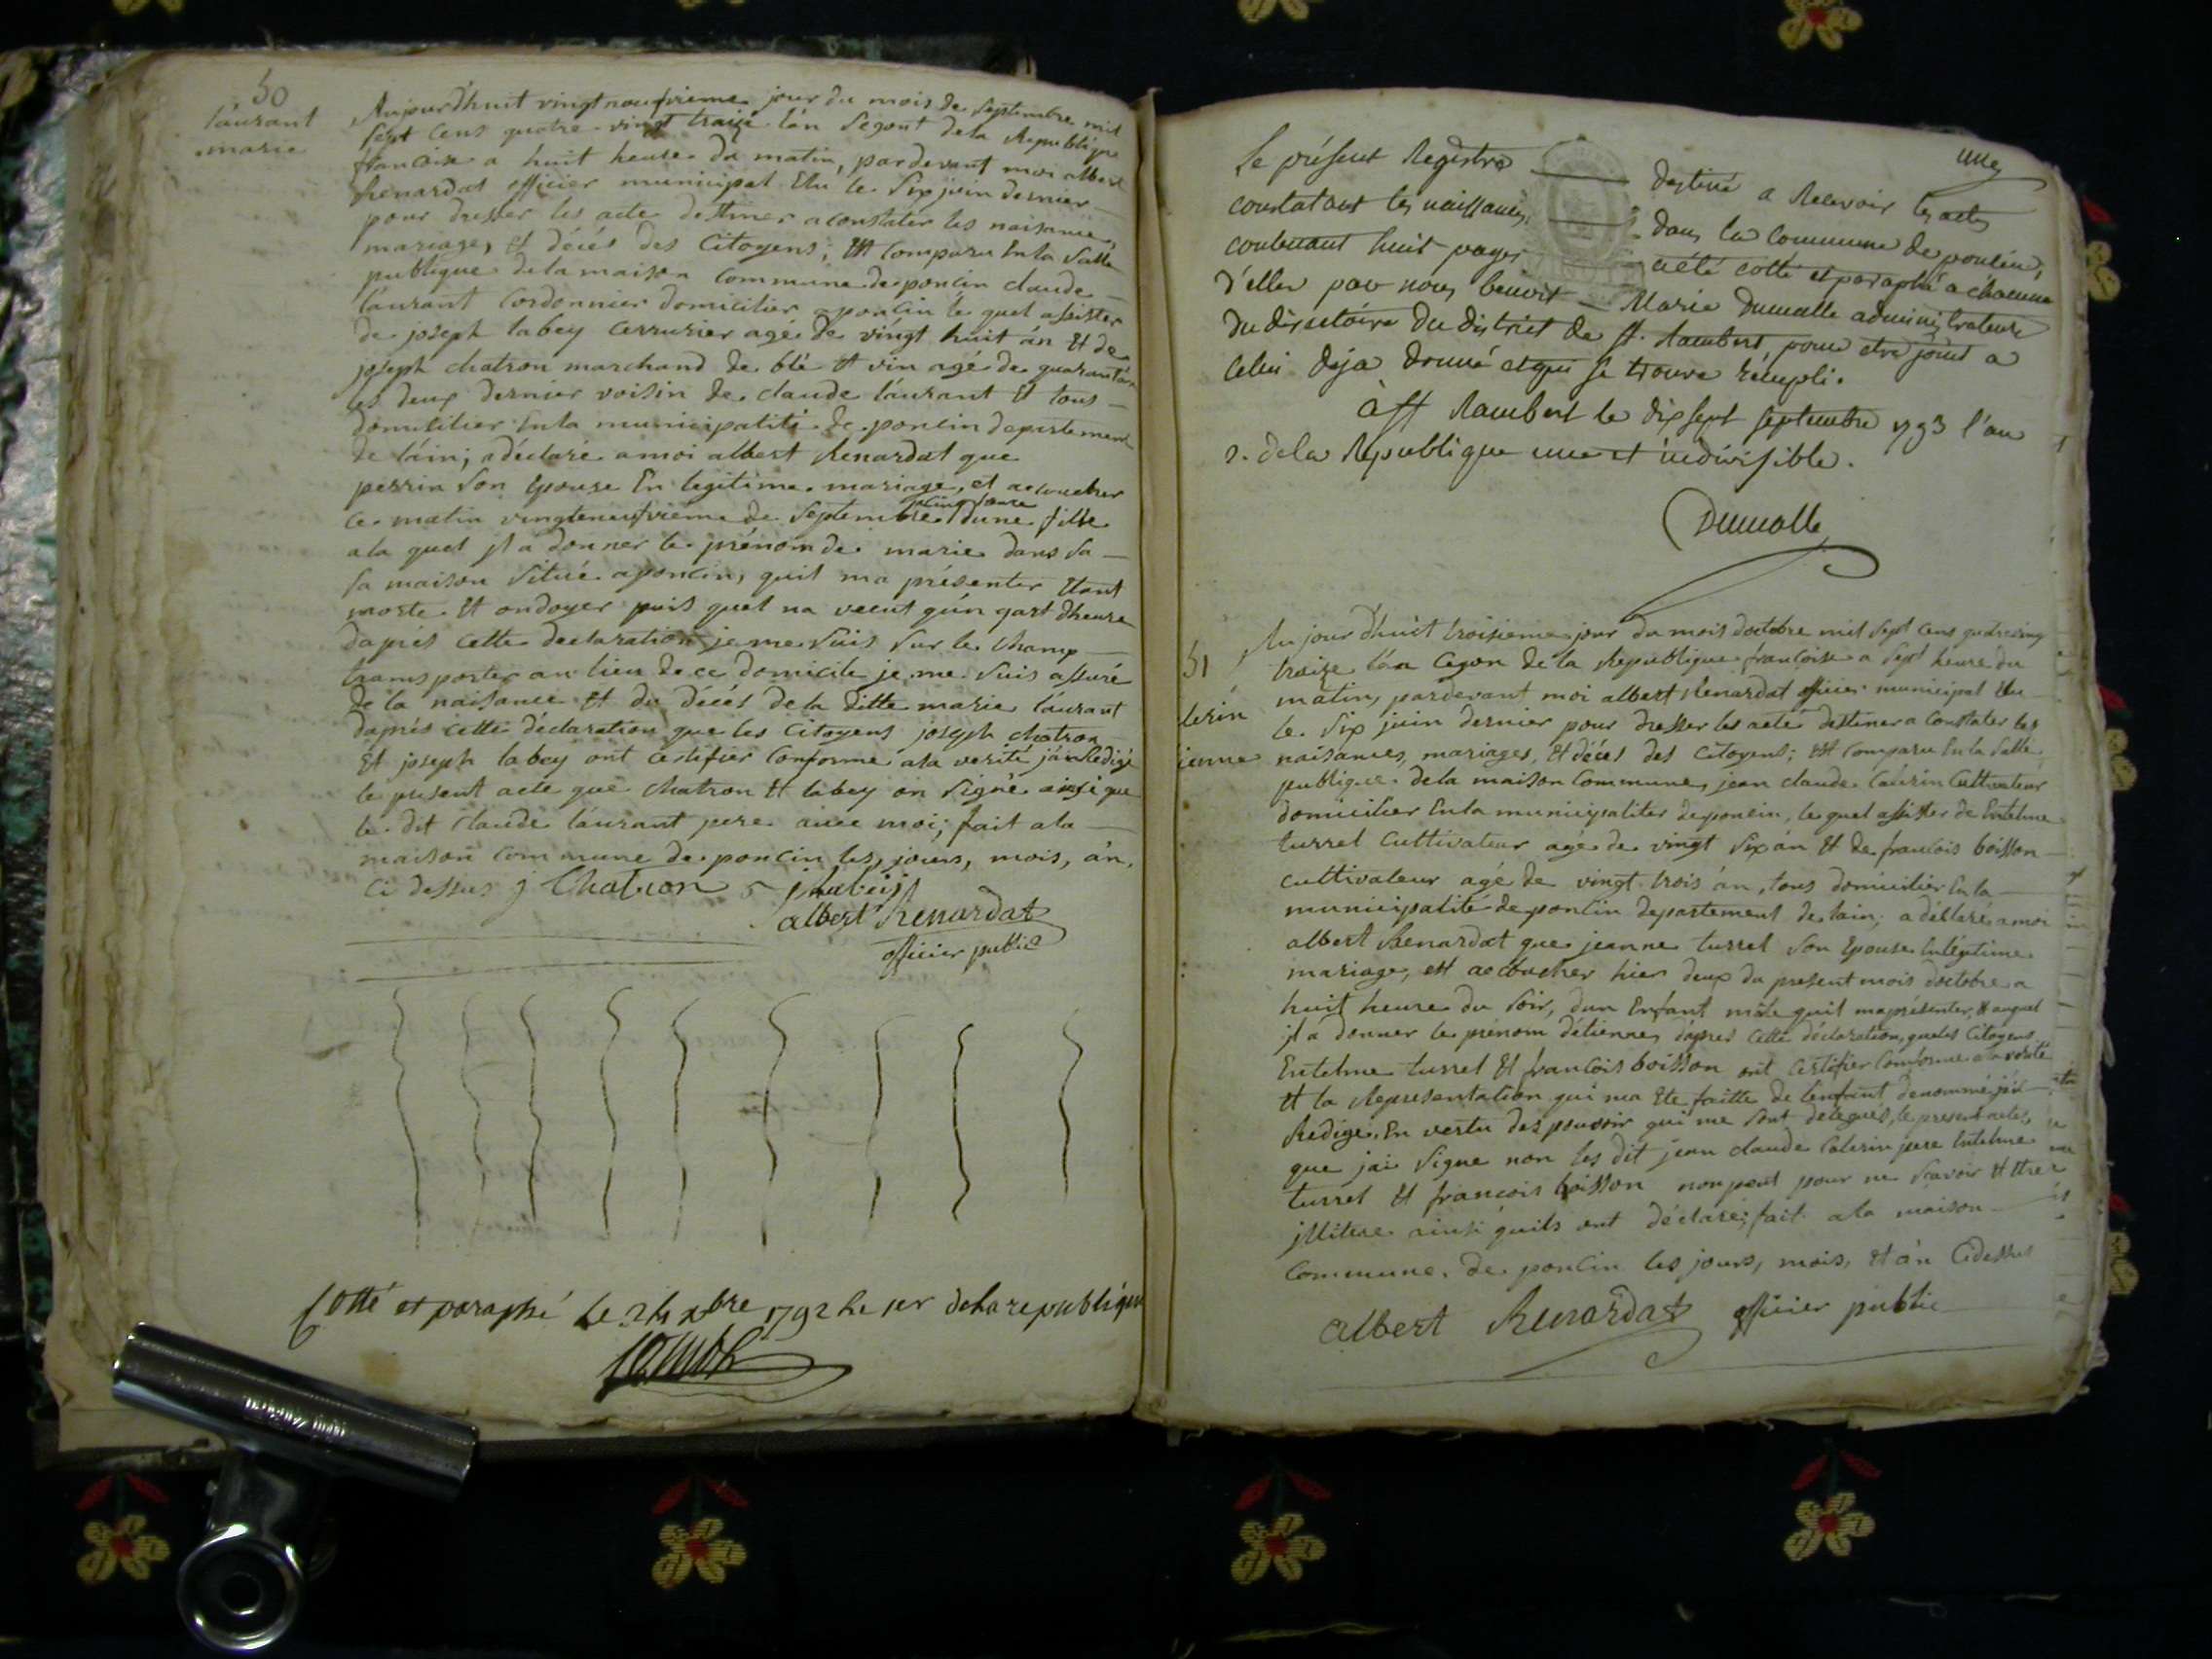 50
laurant
marie
Aujourd'huit vingt neufvieme jour du mois de Septembre mil
Sept Cens quatre vingt traize l'án Segont dela Republique
francoise a huit heure du matin, pardevant moi albert
Renardat officier municipal Elu le Six juin dernier
pour dresser les acte destiner a constater les naisance,
mariages, et décés des Citoyens; Est comparu En la Salle
publique de la maison Commune de poncin claude
láurant Cordonnier domicilier a poncin le quel assister
de joseph labey Cerrurier agé de vingt huit án Et de
joseph chatron marchand de blé Et vin agé de quarant án
les deux dernier voisin de claude láurant Et tous
domicilier En la municipalité de poncin departement
de láin; a déclaré a moi albert Renardat que
perrin Son Epouse En legitime mariage, et acoucher
ce matin vingteneufvieme de Septembre a cinq heure dune fille
ala quel jl a donner le prénom de marie dans Sa
Sa maison Situé a poncin, quil ma présenter Etant
morte Et ondoyer puis quel na vecut qún qart dheure
dapres cette declaration je me Suis Sur le champ
transporter au lieu de ce domicile je me Suis assuré
de la naisance Et du décés de la ditte marie láurant
daprés cette déclaration que les Citoyens joseph chatron
Et joseph labey ont certifier Conforme ala verité jái Redigé
le present acte que chatron Et labey on Signé ainsi que
le dit claude láurant pere avec moi; fait ala
maison commune de poncin les, jours, mois, án,
ci dessus j Chatron j labeij
albert Renardat
officier public
Cotté et paraphé le 24 xbre 1792 le 1er de la republique
une
Le présent Registre destiné a Recevoir les actes
constatant les naissances, dans la Commune de poncin,
contenant huit pages a été cotté et paraphé a chacune
d'elles par nous benoit Marie Dumolle administrateur
du directoire du district de St. Rambert, pour etre joint a
celui déja donné et qui se trouve rémpli.
à St Rambert le dix sept septembre 1793 l'an
2. de la Republique une et indivisible.
Dumolle
51
lerin
ienne
Au jour d'huit troisieme jour du mois doctobre mil Sept cens quatre ving
traize lán Cegon de la Republique francoise a Sept heure du
matin, pardevant moi albert Renardat officier municipal Elu
le Six juin dernier pour dresser les acte destiner a Constater les
naisances, mariages, Et décés des Citoyens; Est Comparu En la Salle
publique de la maison Commune, jean claude Cáurin Cultivateur
domicilier En la municipaliter de poncin, le quel assister de Entelme
turrel Cultivateur agé de vingt Six án Et de francois boisson
cultivateur agé de vingt trois án, tous domicilier En la
municipalité de poncin departement de lain; a déclaré a moi
albert Renardat que jeanne turrel Son Epouse En légitime
mariage, est accoucher hier deux du present mois doctobre a
huit heure du Soir, dun Enfant mâle quil ma présenter, Et auquel
jl a donner le prénom détienne, dápres cette déclaration, que les Citoyens
Entelme turrel Et francois boisson ont certifier Conforme ala verité
Et la Representation qui ma Ete faitte de lenfant denommé jái
Redigé, En vertu des pouvoir qui me sont delegués, le present acte,
que jai Signe non les dit jean claude Calerin pere Entelme
turrel Et francois boisson non peut pour ne Scavoir Et Etre
jllitere ainsi quils ont déclaré; fait ala maison
Commune de poncin les jours, mois, et án Cidessus
albert Renardat officier public